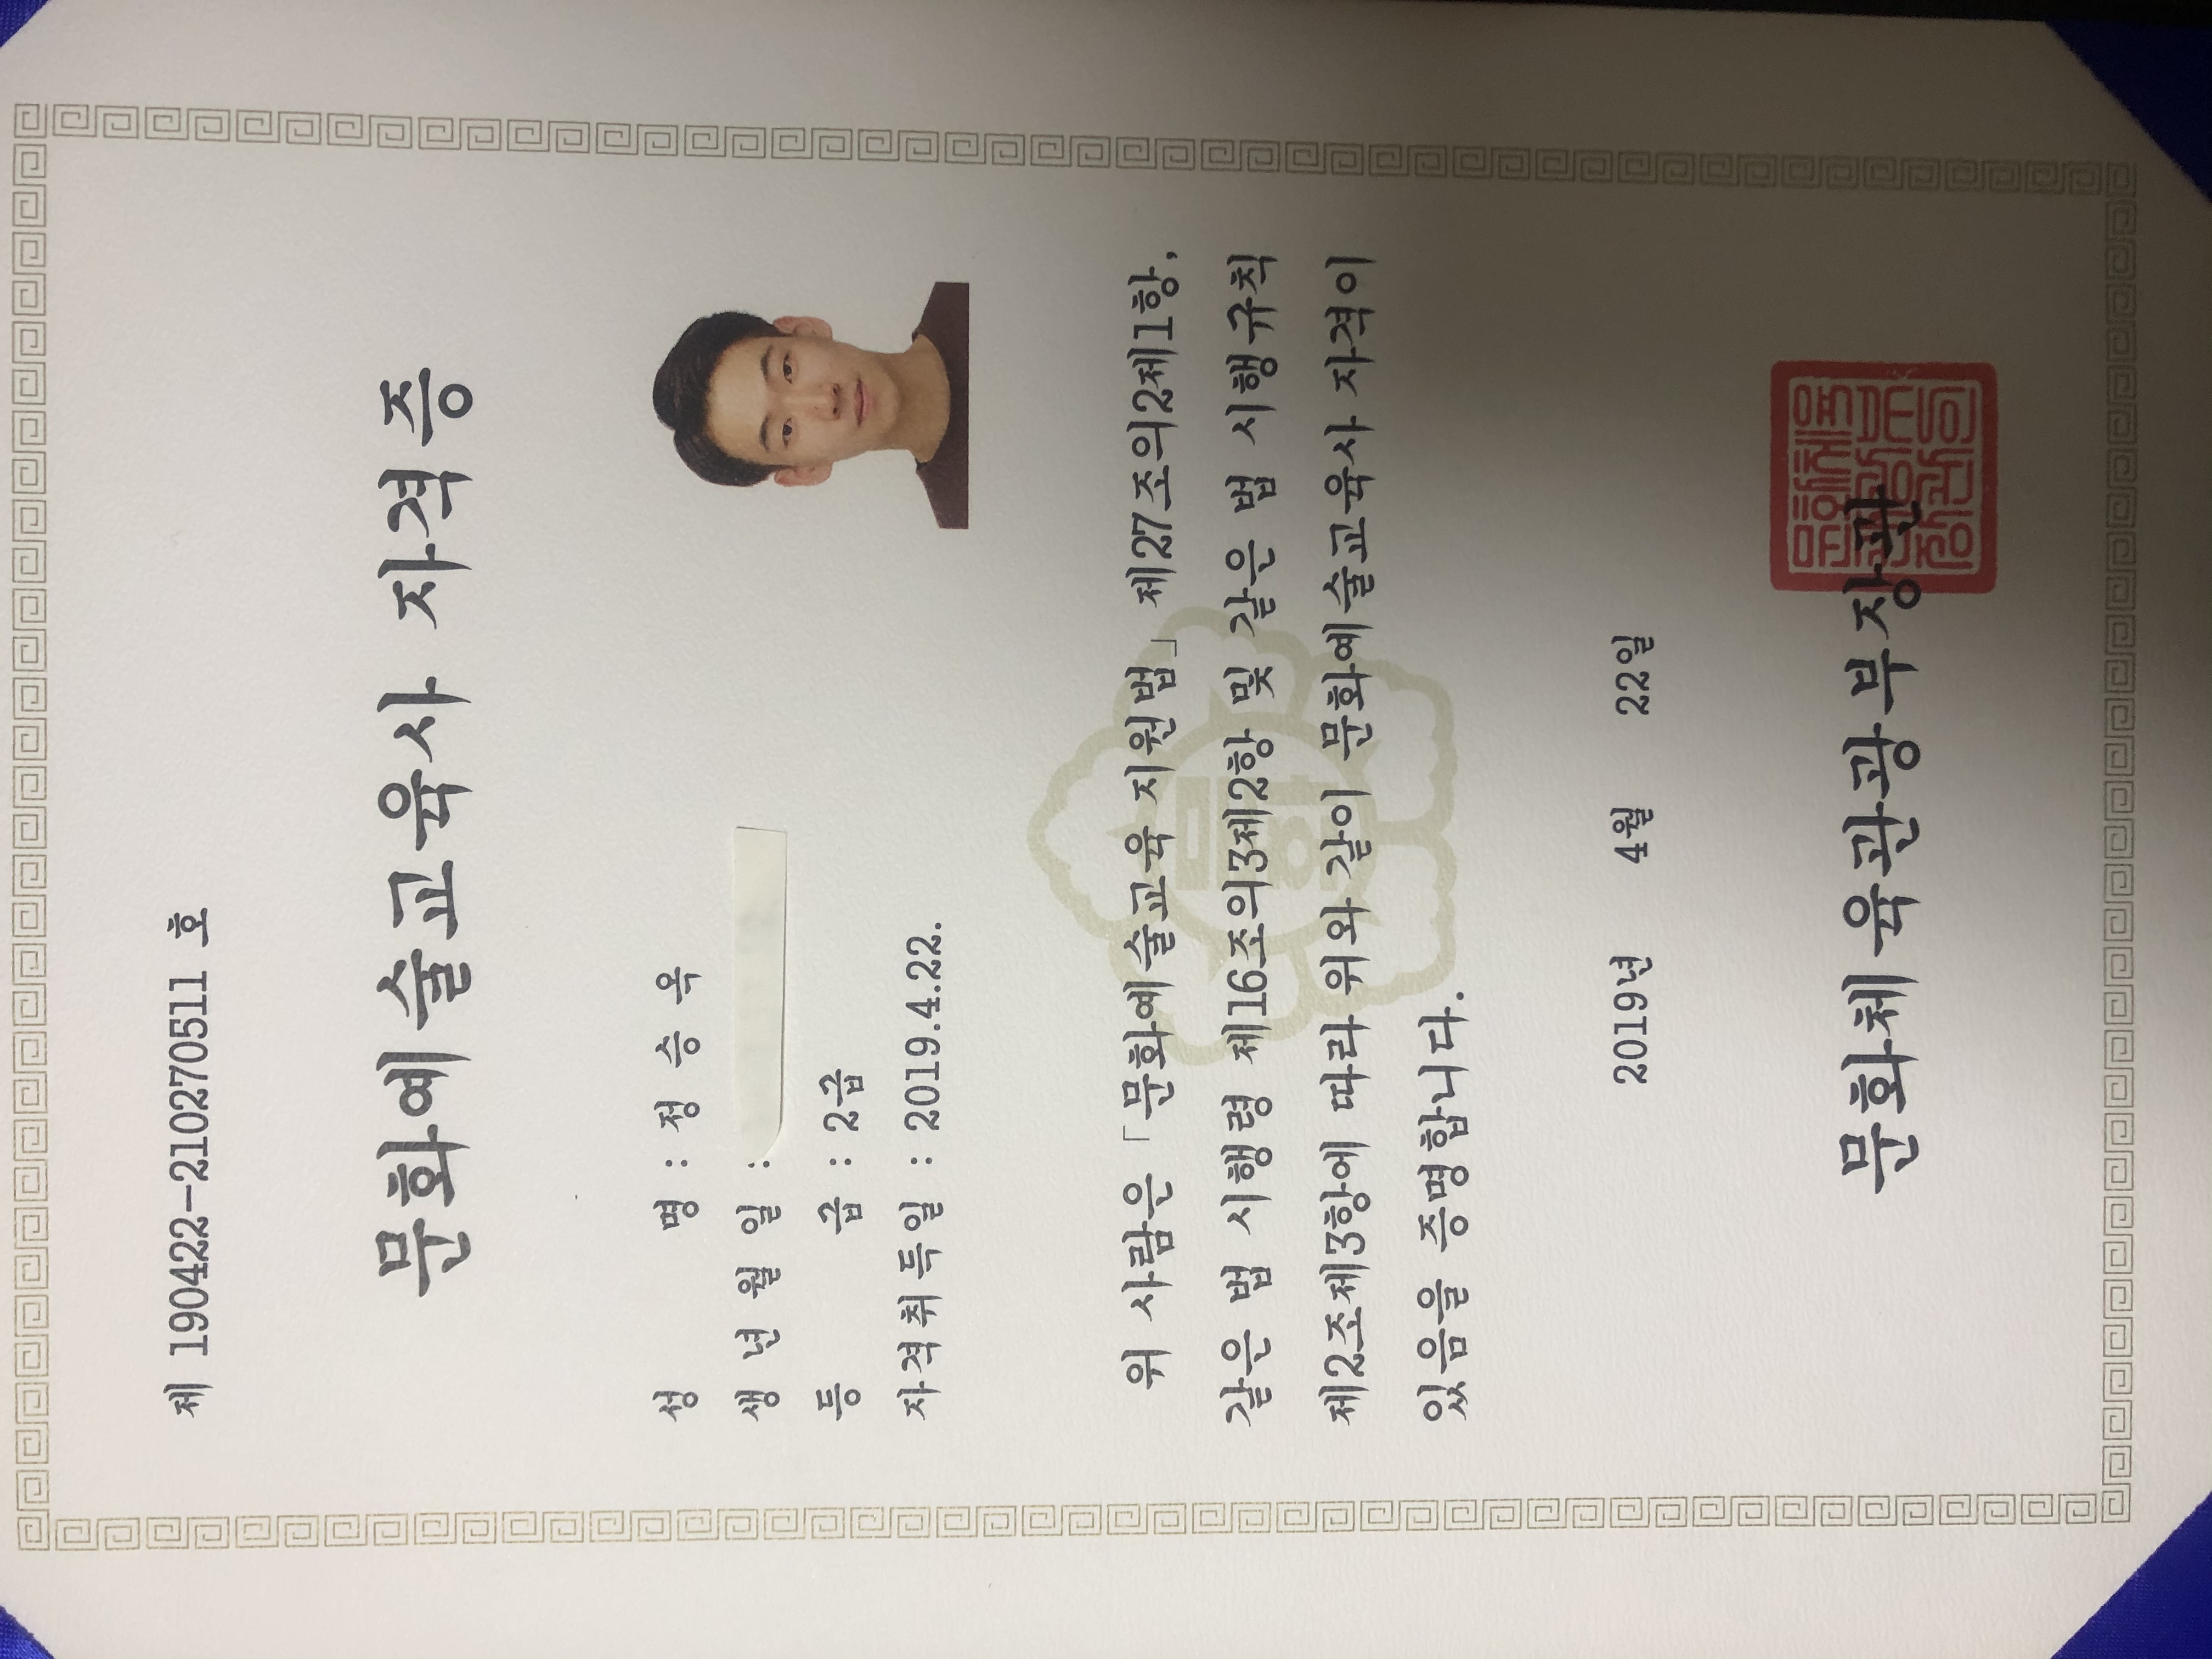 제 190422-210270511 호
문화예술교육사 자격증
성 명 : 정 승 옥
생 년 월 일 :
등 급 : 2급
자격취득일 : 2019.4.22.
위 사람은 「문화예술교육 지원법」 제27조의2제1항,
같은 법 시행령 제16조의3제2항 및 같은 법 시행규칙
제2조제3항에 따라 위와 같이 문화예술교육사 자격이
있음을 증명합니다.
2019년 4월 22일
문화체육관광부장관